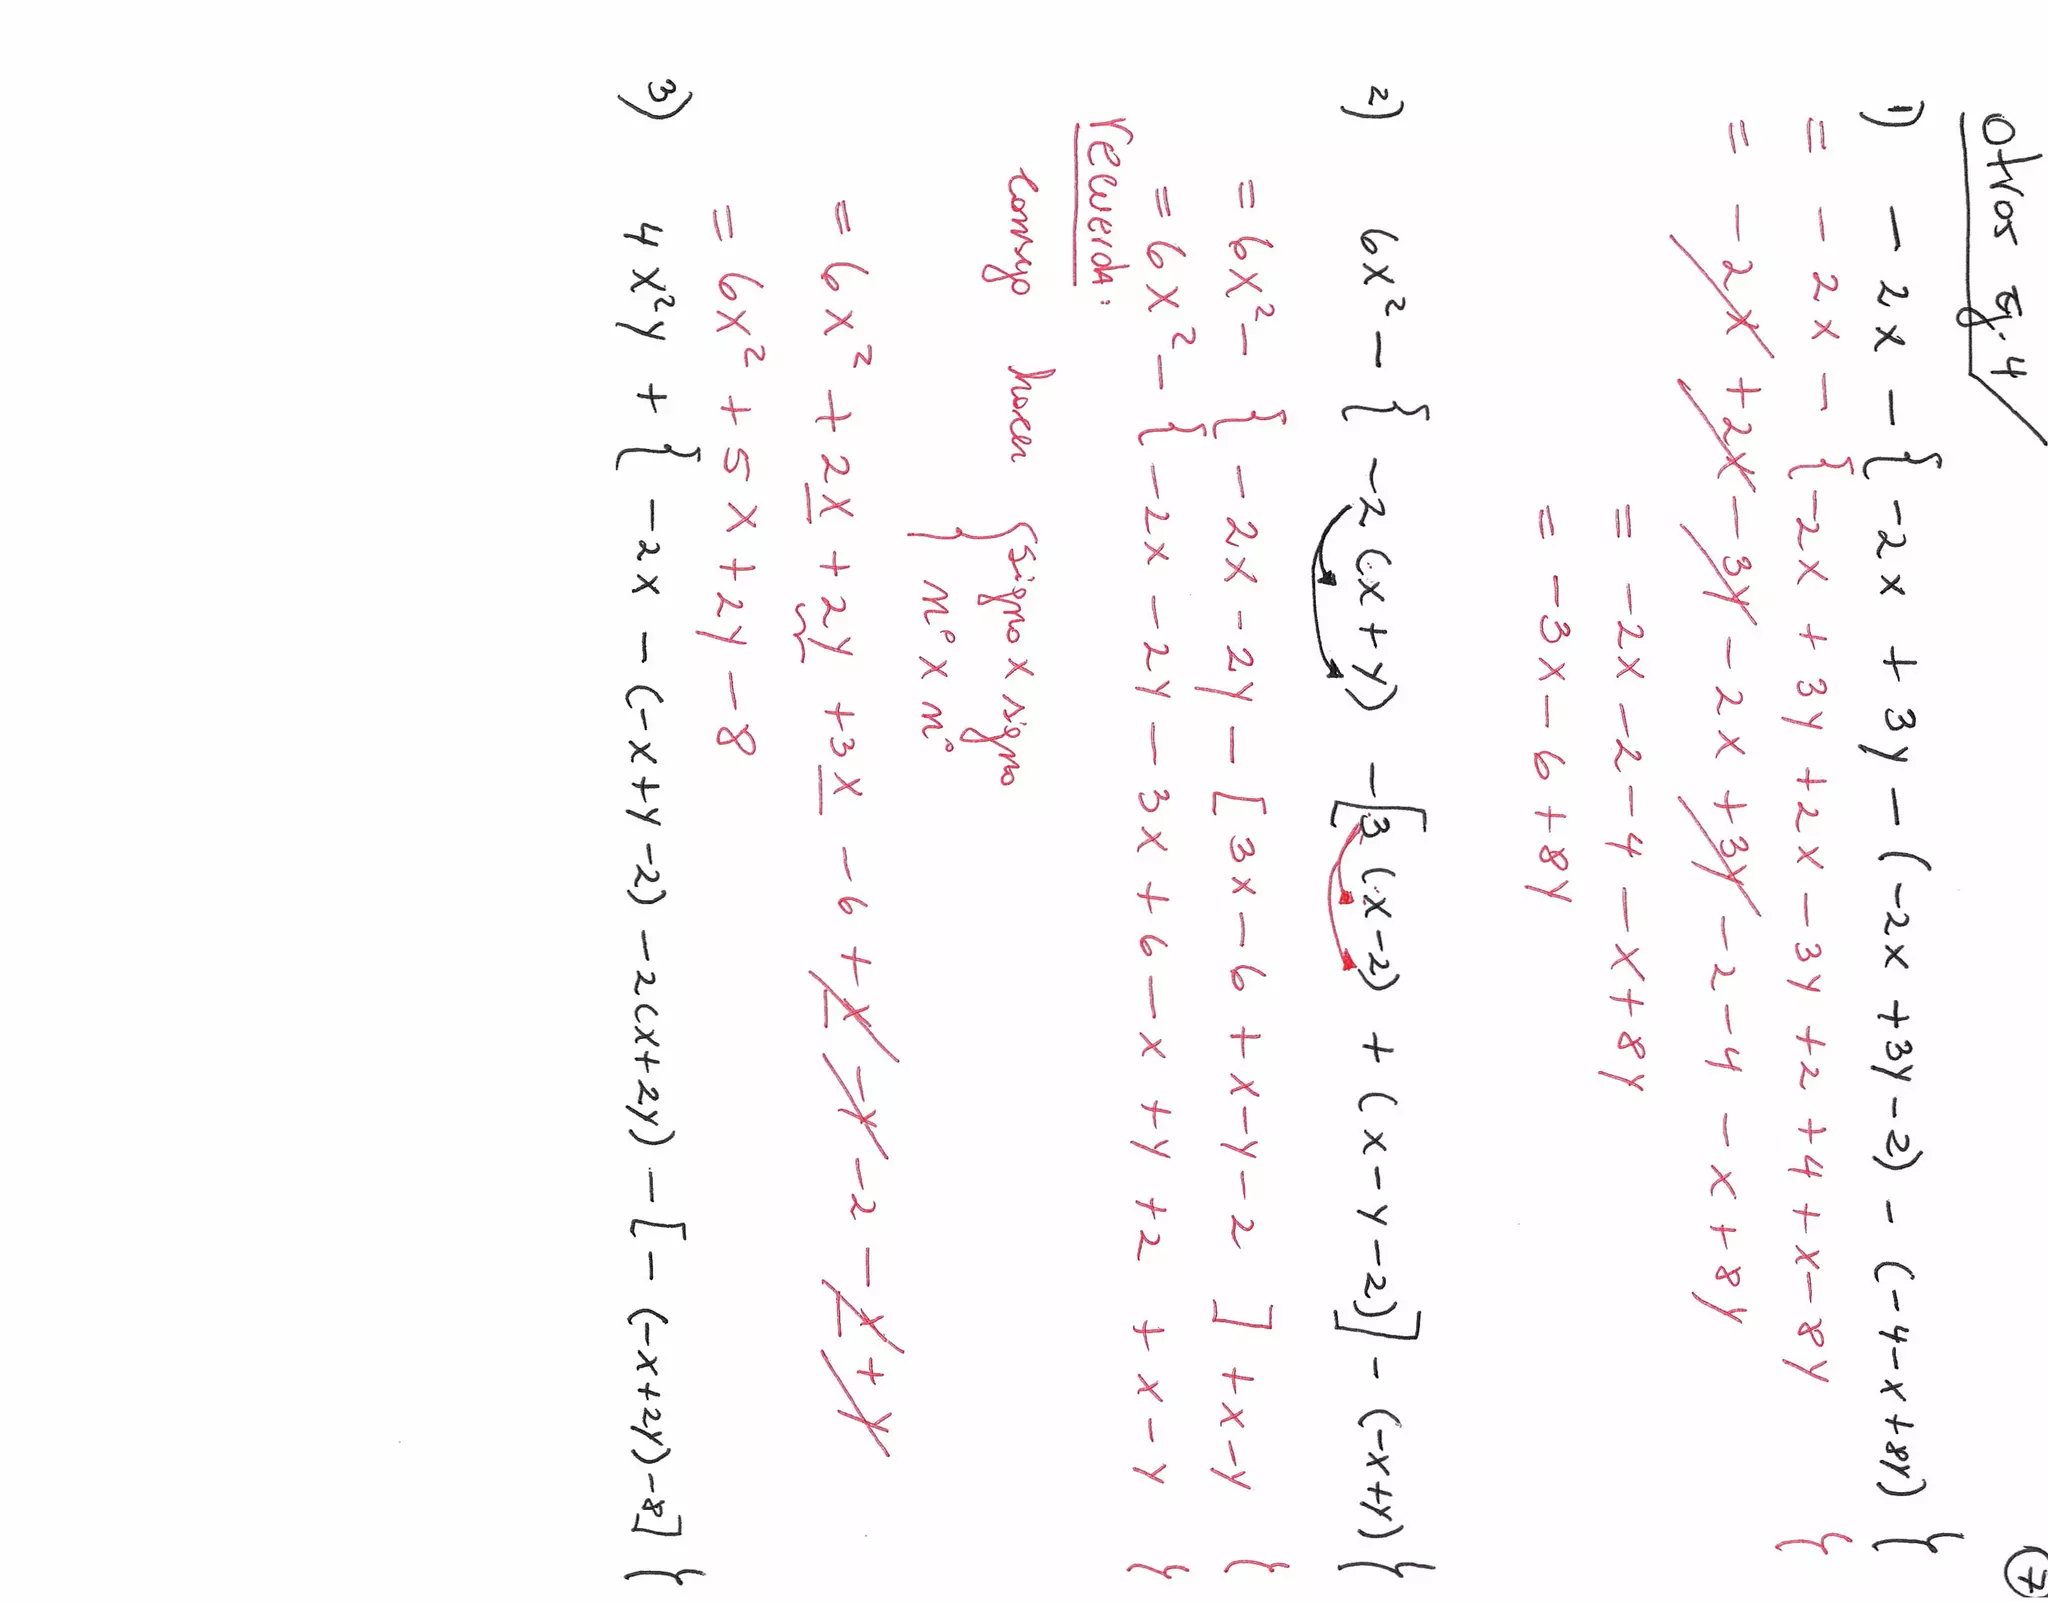 Otros Ej. 4
7
1) - 2x - { -2x + 3y - (-2x + 3y - 2) - (-4 - x + 8y) }
= - 2x - { -2x + 3y + 2x - 3y + 2 + 4 + x - 8y }
= - 2x + 2x - 3y - 2x + 3y - 2 - 4 - x + 8y
= - 2x - 2 - 4 - x + 8y
= - 3x - 6 + 8y
2) 6x² - { -2(x+y) - [3(x-2) + (x - y - 2)] - (-x+y) }
= 6x² - { - 2x - 2y - [ 3x - 6 + x - y - 2 ] + x - y }
= 6x² - { - 2x - 2y - 3x + 6 - x + y + 2 + x - y }
recuerda:
consigo hacer { signo x signo
nº x nº
= 6x² + 2x + 2y + 3x - 6 + x - y - 2 - x + y
= 6x² + 5x + 2y - 8
3) 4x²y + { - 2x - (-x+y-2) - 2(x+2y) - [ - (-x+2y) - 8] }